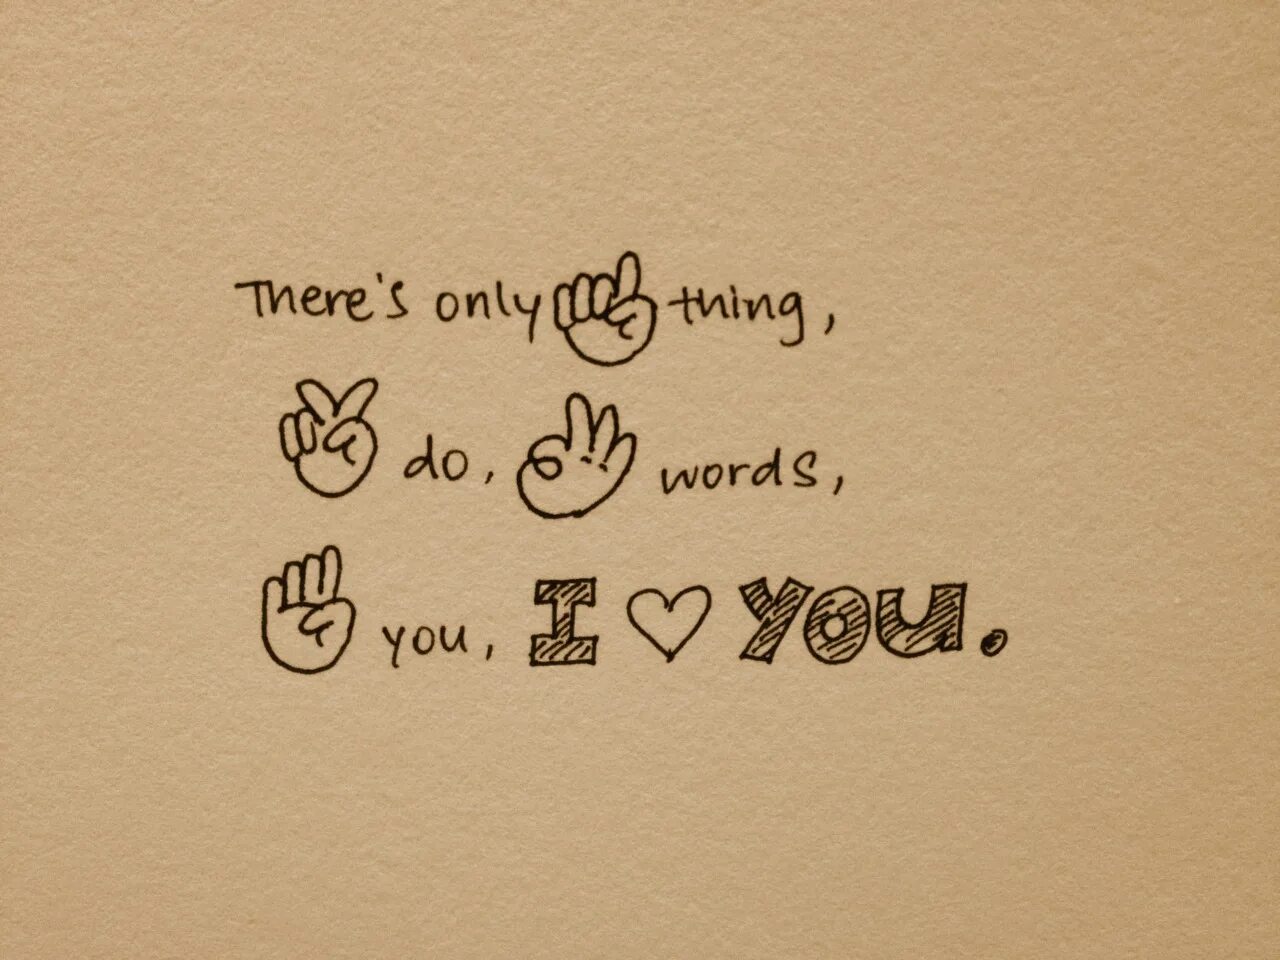 There's only ☝ thing,
✌ do, 👌 words,
you, I ♡ YOU.